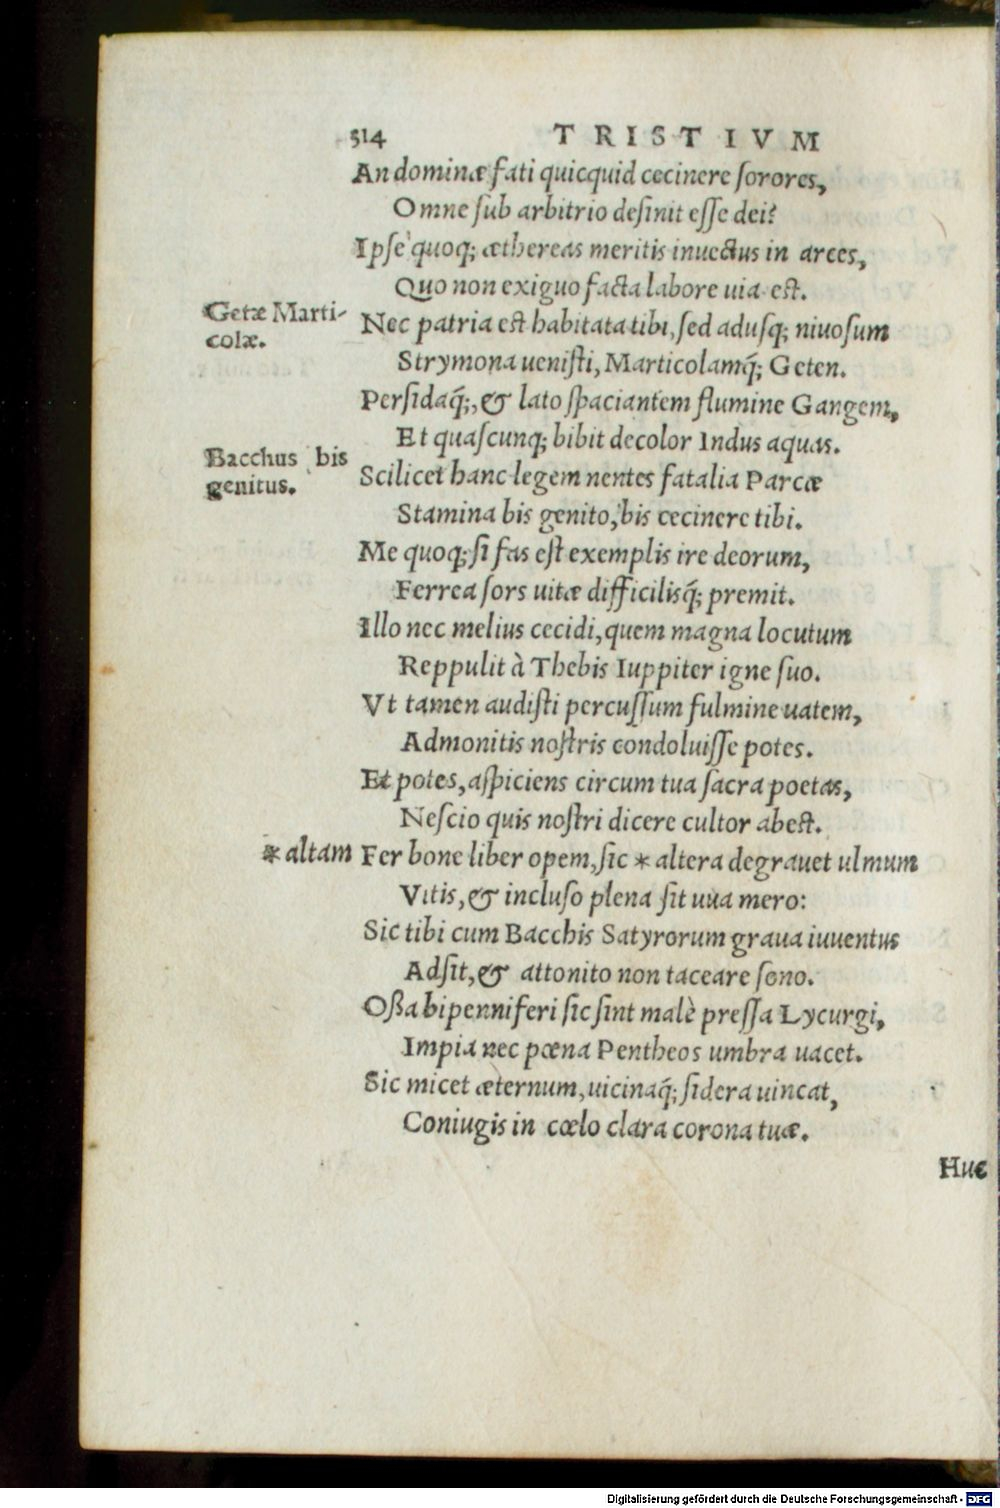 514 TRISTIVM
An dominæ fati quicquid cecinere ſorores,
Omne ſub arbitrio deſinit eſſe dei?
Ipſe quoq; æthereas meritis inuectus in arces,
Quo non exiguo facta labore uia est.
Getæ Marti-
colæ.
Nec patria est habitata tibi, ſed aduſq; niuoſum
Strymona ueniſti, Marticolamq́; Geten.
Perſidaq́;, & lato ſpaciantem flumine Gangem,
Et quaſcunq; bibit decolor Indus aquas.
Bacchus bis
genitus.
Scilicet hanc legem nentes fatalia Parcæ
Stamina bis genito, bis cecinere tibi.
Me quoq; ſi fas eſt exemplis ire deorum,
Ferrea ſors uitæ difficilisq́; premit.
Illo nec melius cecidi, quem magna locutum
Reppulit à Thebis Iuppiter igne ſuo.
Vt tamen audiſti percuſſum fulmine uatem,
Admonitis noſtris condoluiſſe potes.
Et potes, aſpiciens circum tua ſacra poetas,
Neſcio quis noſtri dicere cultor abest.
* altam
Fer bone liber opem, ſic * altera degrauet ulmum
Vitis, & incluſo plena ſit uua mero:
Sic tibi cum Bacchis Satyrorum graua iuuentus
Adſit, & attonito non taceare ſono.
Oßa bipenniferi ſic ſint malè preſſa Lycurgi,
Impia nec pœna Pentheos umbra uacet.
Sic micet æternum, uicinaq́; ſidera uincat,
Coniugis in cœlo clara corona tuæ.
Huc
Digitalisierung gefördert durch die Deutsche Forschungsgemeinschaft - DFG